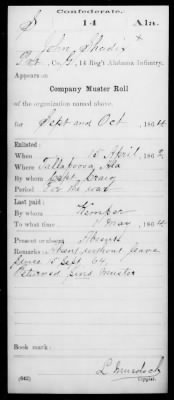 Confederate.
S 14 Ala.
John Rhodis
Pvt, Co. G, 14 Reg't Alabama Infantry.
Appears on
Company Muster Roll
of the organization named above,
for Sept and Oct, 1864.
Enlisted:
When 15 April, 1862
Where Tallapoosa, Ala
By whom Capt. Craig
Period For the war
Last paid:
By whom Kemper
To what time 1 May, 1864
Present or absent Absent
Remarks: Absent without leave
since 15 Sept 64.
Returned since muster
Book mark:
(642)
L. Murdoch
Copyist.